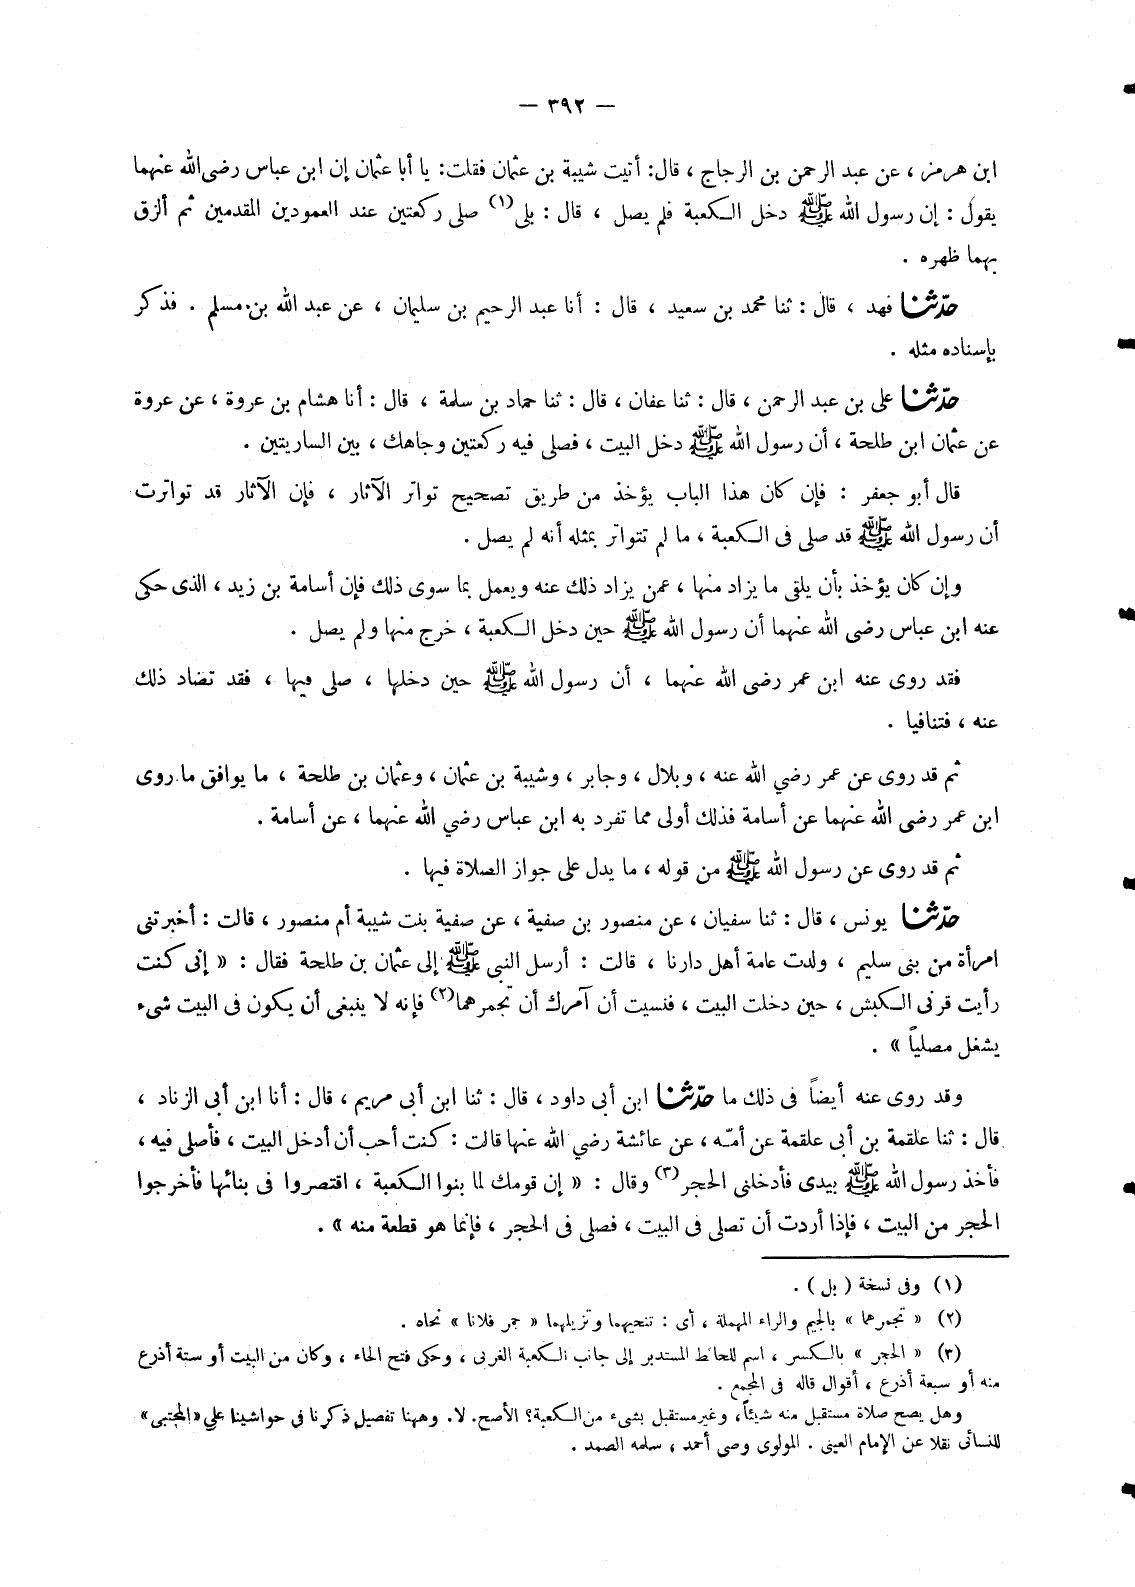 — ٣٩٢ —
ابن هرمز ، عن عبد الرحمن بن الرجاج ، قال: أتيت شيبة بن عثمان فقلت: يا أبا عثمان إن ابن عباس رضى الله عنهما
يقول : إن رسول الله ﷺ دخل الكعبة فلم يصل ، قال : بلى(١) صلى ركعتين عند العمودين المقدمين ثم ألزق
بهما ظهره .
حدّثنا فهد ، قال : ثنا محمد بن سعيد ، قال : أنا عبد الرحيم بن سليمان ، عن عبد الله بن مسلم . فذكر
بإسناده مثله .
حدّثنا على بن عبد الرحمن ، قال : ثنا عفان ، قال : ثنا حماد بن سلمة ، قال : أنا هشام بن عروة ، عن عروة
عن عثمان ابن طلحة ، أن رسول الله ﷺ دخل البيت ، فصلى فيه ركعتين وجاهك ، بين الساريتين .
قال أبو جعفر : فإن كان هذا الباب يؤخذ من طريق تصحيح تواتر الآثار ، فإن الآثار قد تواترت
أن رسول الله ﷺ قد صلى فى الكعبة ، ما لم تتواتر بمثله أنه لم يصل .
وإن كان يؤخذ بأن يلقى ما يزاد منها ، عمن يزاد ذلك عنه ويعمل بما سوى ذلك فإن أسامة بن زيد ، الذى حكى
عنه ابن عباس رضى الله عنهما أن رسول الله ﷺ حين دخل الكعبة ، خرج منها ولم يصل .
فقد روى عنه ابن عمر رضى الله عنهما ، أن رسول الله ﷺ حين دخلها ، صلى فيها ، فقد تضاد ذلك
عنه ، فتنافيا .
ثم قد روى عن عمر رضي الله عنه ، وبلال ، وجابر ، وشيبة بن عثمان ، وعثمان بن طلحة ، ما يوافق ما روى
ابن عمر رضى الله عنهما عن أسامة فذلك أولى مما تفرد به ابن عباس رضي الله عنهما ، عن أسامة .
ثم قد روى عن رسول الله ﷺ من قوله ، ما يدل على جواز الصلاة فيها .
حدّثنا يونس ، قال : ثنا سفيان ، عن منصور بن صفية ، عن صفية بنت شيبة أم منصور ، قالت : أخبرتنى
امرأة من بنى سليم ، ولدت عامة أهل دارنا ، قالت : أرسل النبي ﷺ إلى عثمان بن طلحة فقال : « إنى كنت
رأيت قرنى الكبش ، حين دخلت البيت ، فنسيت أن آمرك أن تجمرهما(٢) فإنه لا ينبغى أن يكون فى البيت شىء
يشغل مصلياً » .
وقد روى عنه أيضاً فى ذلك ما حدّثنا ابن أبى داود ، قال : ثنا ابن أبى مريم ، قال : أنا ابن أبى الزناد ،
قال : ثنا علقمة بن أبى علقمة عن أمّه ، عن عائشة رضي الله عنها قالت : كنت أحب أن أدخل البيت ، فأصلى فيه ،
فأخذ رسول الله ﷺ بيدى فأدخلنى الحجر(٣) وقال : « إن قومك لما بنوا الكعبة ، اقتصروا فى بنائها فأخرجوا
الحجر من البيت ، فإذا أردت أن تصلى فى البيت ، فصلى فى الحجر ، فإنما هو قطعة منه » .
(١) وفى نسخة ( بل ) .
(٢) « تجمرهما » بالجيم والراء المهملة ، أى : تنحيهما وتزيلهما « جمر فلانا » نحاه .
(٣) « الحجر » بالكسر ، اسم للحائط المستدير إلى جانب الكعبة الغربى ، وحكى فتح الحاء ، وكان من البيت أو ستة أذرع
منه أو سبعة أذرع ، أقوال قاله فى المجمع .
وهل يصح صلاة مستقبل منه شيئاً، وغير مستقبل بشىء من الكعبة؟ الأصح. لا. وههنا تفصيل ذكرنا فى حواشينا علي «المجتبى»
للنسائى نقلا عن الإمام العينى . المولوى وصى أحمد ، سلمه الصمد .